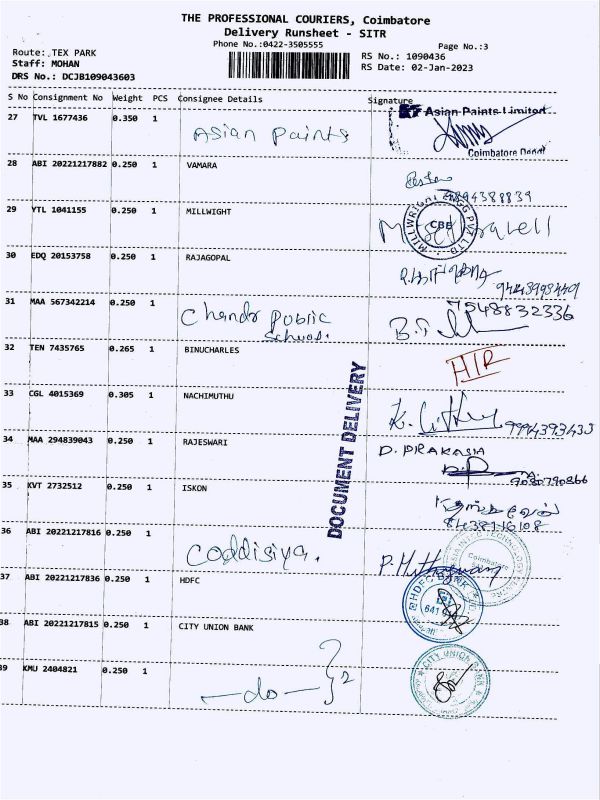 THE PROFESSIONAL COURIERS, Coimbatore
Delivery Runsheet - SITR
Phone No.:0422-3505555
Page No.:3
Route: TEX PARK
Staff: MOHAN
DRS No.: DCJB109043603
RS No.: 1090436
RS Date: 02-Jan-2023
S No Consignment No Weight PCS Consignee Details Signature
27 TVL 1677436 0.350 1 Asian Paints
Asian Paints Limited
Coimbatore Depot
28 ABI 20221217882 0.250 1 VAMARA
9894388839
29 YTL 1041155 0.250 1 MILLWIGHT
CBE
30 EDQ 20153758 0.250 1 RAJAGOPAL
31 MAA 567342214 0.250 1 Chandr Public School.
7548832336
32 TEN 7435765 0.265 1 BINUCHARLES
33 CGL 4015369 0.305 1 NACHIMUTHU
34 MAA 294839043 0.250 1 RAJESWARI D. PRAKASH
9080790866
35 KVT 2732512 0.250 1 ISKON
8438116108
DOCUMENT DELIVERY
36 ABI 20221217816 0.250 1 Coddisiya.
Coimbatore
37 ABI 20221217836 0.250 1 HDFC
HDFC BANK
38 ABI 20221217815 0.250 1 CITY UNION BANK
39 KMU 2404821 0.250 1 —do— 2
CITY UNION BANK